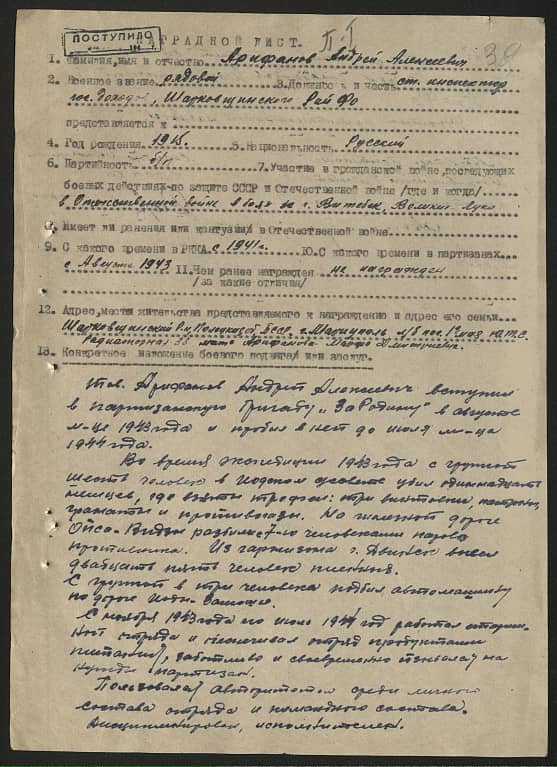 ПОСТУПИЛО
НАГРАДНОЙ ЛИСТ.
39
1. Фамилия,имя и отчество Арифанов Андрей Алексеевич
2. Военное звание рядовой 3.Должность и часть ст. инспектор
гос. доходов, Шарковщинский РайФО
представляется к
4. Год рождения 1915 5.Национальность Русский
6. Партийность б/п 7.Участие в гражданской войне,последующих
боевых действиях-по защите СССР и Отечественной войне /где и когда/
в Отечественной войне в боях за г. Витебск, Великие Луки
8. Имеет ли ранения или контузии в Отечественной войне
9. С какого времени в РККА с 1941г. 10.С какого времени в партизанах
с Августа 1943 11.Чем ранее награжден не награжден
/за какие отличия/
12. Адрес,место жительства представляемого к награждению и адрес его семьи
Шарковщинский р-н, Полоцкой БССР, г. Мариуполь
мать Арифанова Марфа Дмитриевна.
13. Конкретное изложение боевого подвига или заслуг.
Тов. Арифанов Андрей Алексеевич вступил
в партизанскую бригаду „За Родину" в августе
м-це 1943 года и пробыл в ней до июля м-ца
1944 года.
Во время экспедиции 1943 года с группой
шесть человек в сельсовете убил одиннадцать
немцев, где взяты трофеи: три винтовки, патроны,
гранаты и противогазы. На железной дороге
разбили человеками паровоз
противника. Из гарнизона г. Двинск вывел
двадцать пять человек пленных.
С группой в три человека подбил автомашину
на дороге
С ноября 1943 года по июль 1944 год работал старши-
ной отряда и обеспечивал отряд продуктами
питания, заботливо и своевременно на
нужды партизан.
Пользовался авторитетом среди личного
состава отряда и командного состава.
Дисциплинирован, исполнителен.